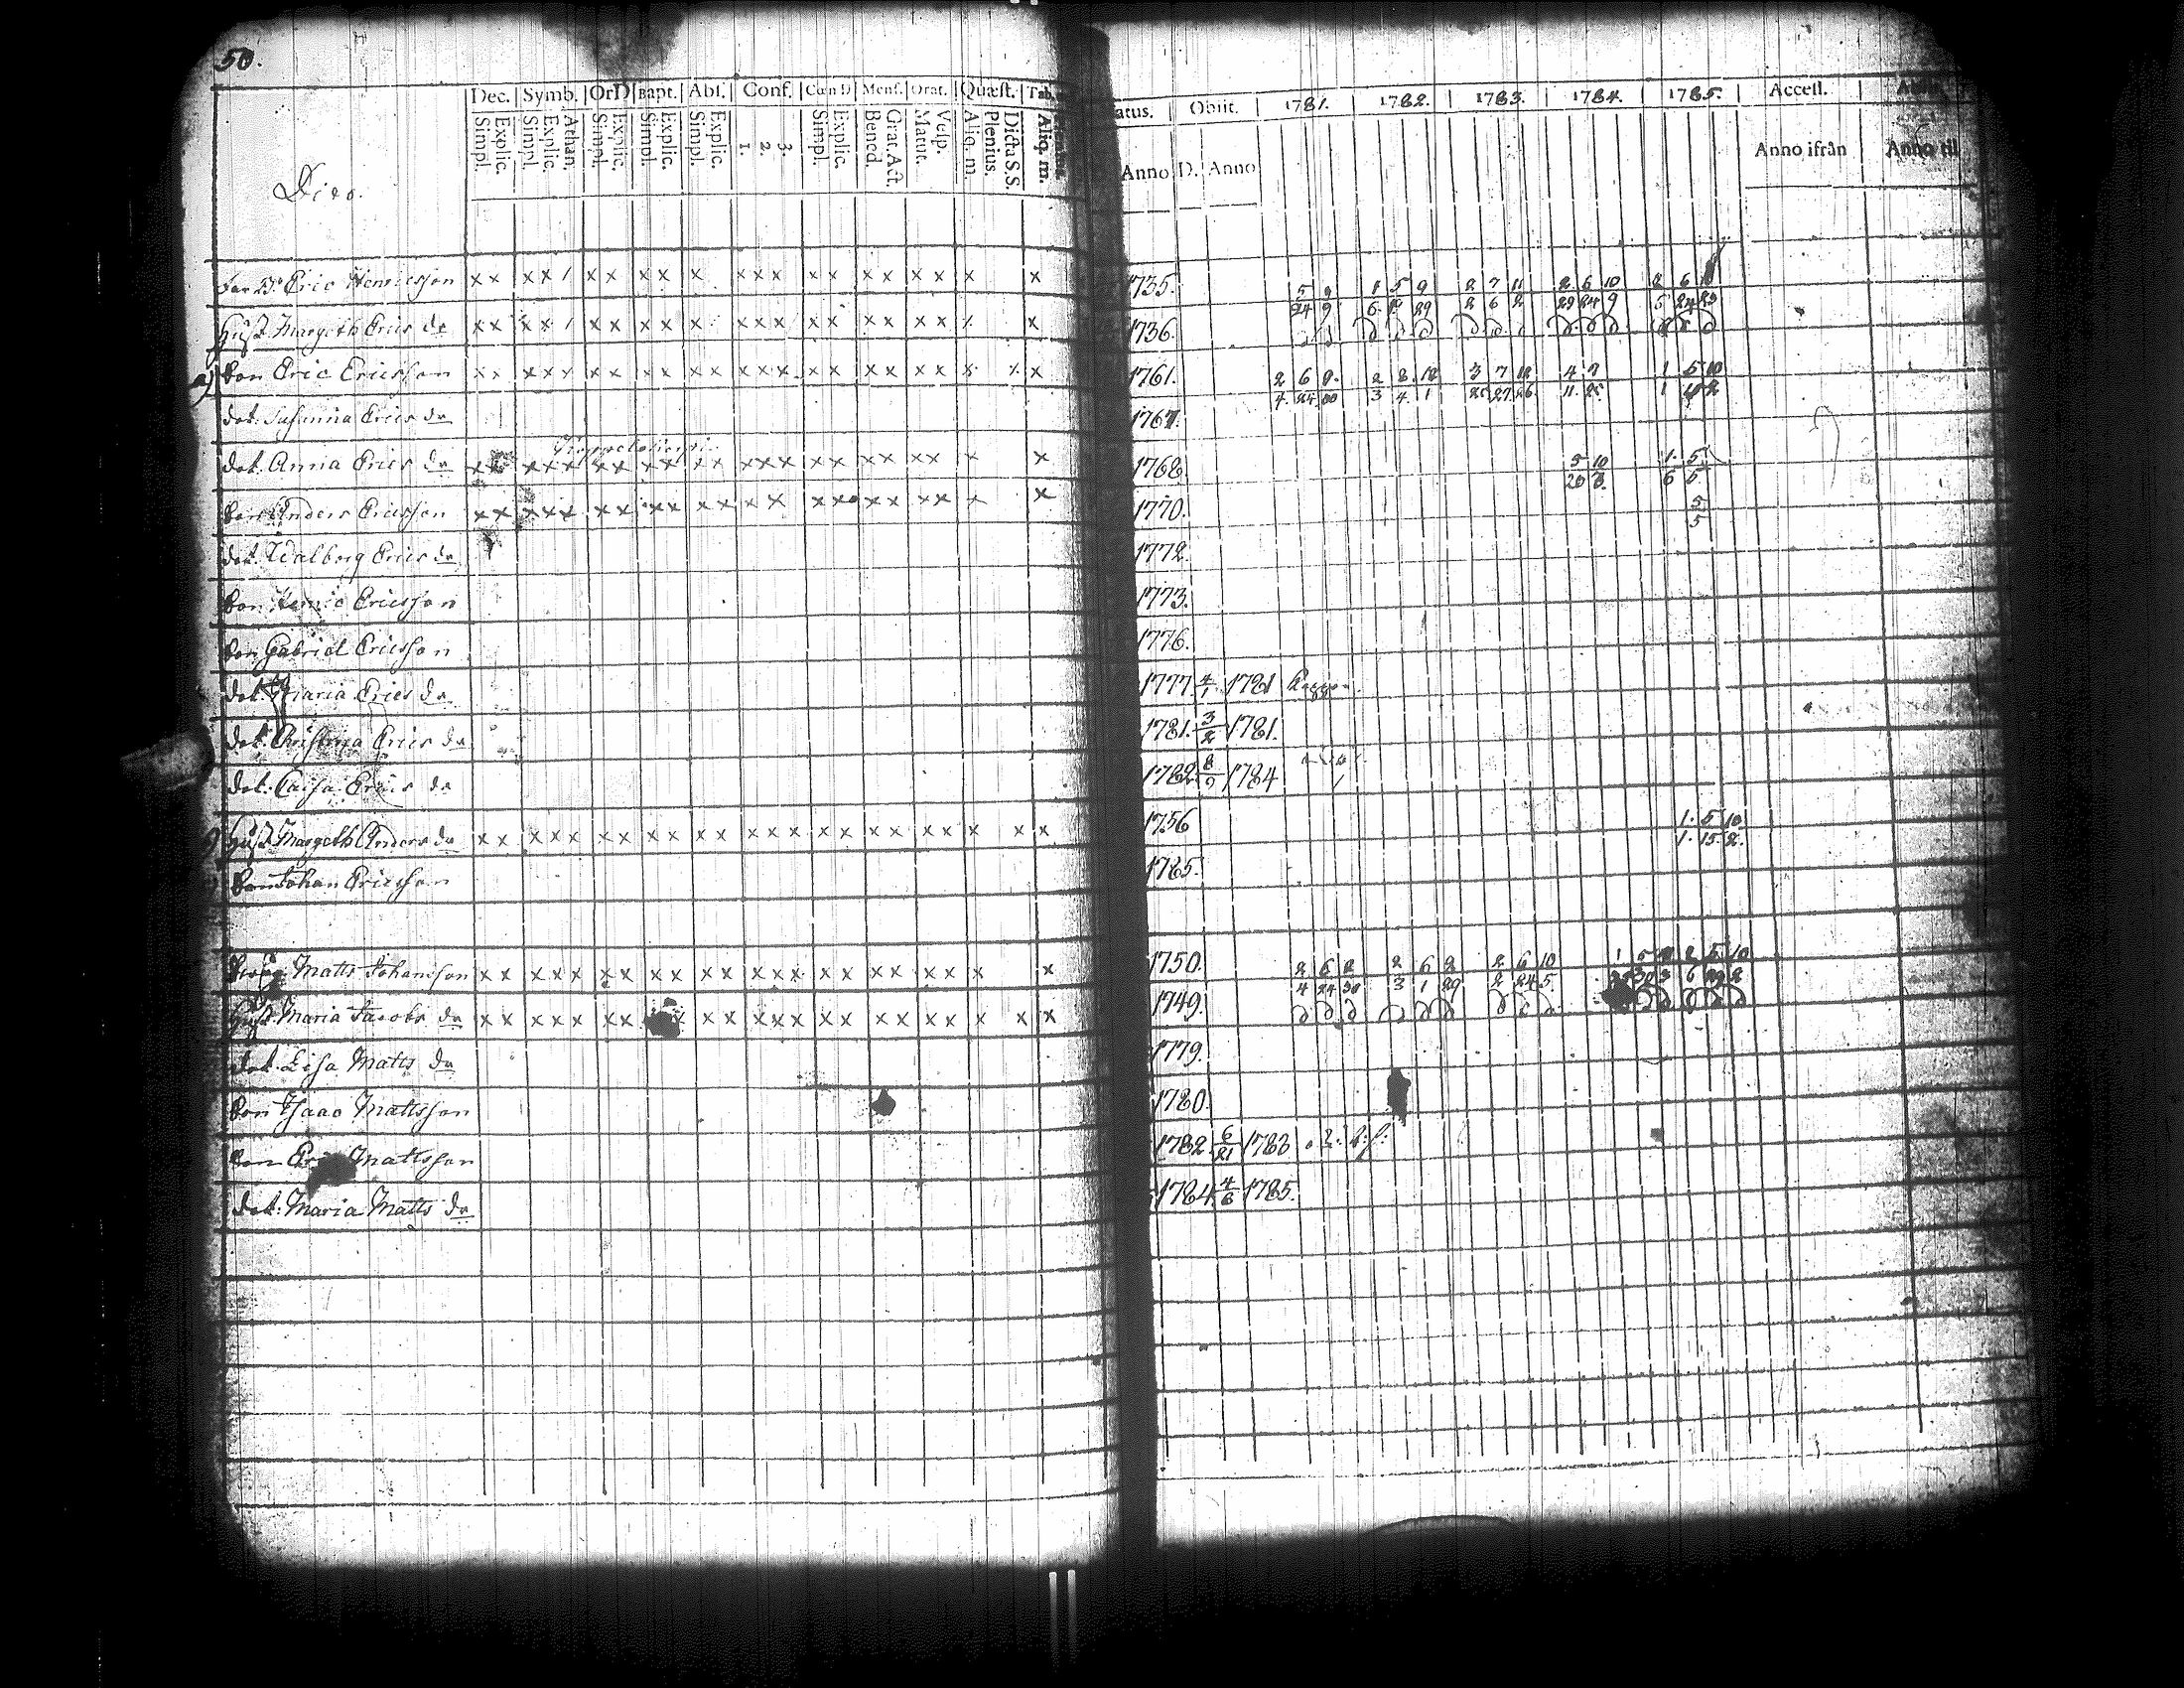 50.
Dec. Symb. OrD Bapt. Abs. Conf. Cœn D Mens. Orat. Quæst. Tab. atus. Obiit. 1781. 1782. 1783. 1784. 1785. Access.
Explic. Simpl. Athan. Explic. Simpl. Explic. Simpl. Explic. Simpl. Explic. Simpl. 3. 2. 1. Explic. Simpl. Grat. Act. Bened. Vesp. Matut. Dicta S.S. Plenius. Aliq. m. Aliq. m. Anno D. Anno Anno ifrån Anno til
Dito.
Eric Henricsson x x x x / x x x x x x x x x x x x x x x x 1735. 5/24 9/9 1/6 5/9 9/29 2/2 7/6 11/2 2/29 6/24 10/9 2/5 6/24
Hust. Margeth Erics dr x x x x / x x x x x x x x x x x x x x x 1736.
2) Son Eric Ericsson x x x x x x x x x x x x x x x x x x x x x x x 1761. 2/4 6/24 2/3 3/25 7/27 12/26 4/11 1/1 5 10/2
dot. Susanna Erics dr 1767.
dot. Annia Erics dr x x x x x x x x x x x x x x x x x x x x x x 1768 5/20 10/8 1/6 5/6
Son Anders Ericsson x x x x x x x x x x x x x x x x x x x x x 1770. 5/5
dot. Walborg Erics dr 1772.
Son Henric Ericsson 1773.
Son Gabriel Ericsson 1776.
dot. Maria Erics dr 1777. 4/1 1781 Koppor
dot. Christina Erics dr 1781. 3/2 1781.
dot. Caisa Erics dr 1782. 8/9 1784
Hust. Margeth Anders dr x x x x x x x x x x x x x x x x x x x x x x x x 1756 1/1 5/15 10/2
Son Johan Ericsson 1785.
Matts Johansson x x x x x x x x x x x x x x x x x x x x x x x 1750. 2/4 6/24 2/3 6/1 2/2 6/24 10/5 1 5/30 2/6 5 10/2
Hust. Maria Jacobs dr x x x x x x x x x x x x x x x x x x x x x x x 1749.
dot. Lisa Matts dr 1779.
Son Isaac Mattsson 1780.
Son Eric Mattsson 1782 6/21 1783
dot. Maria Matts dr 1784 4/6 1785.